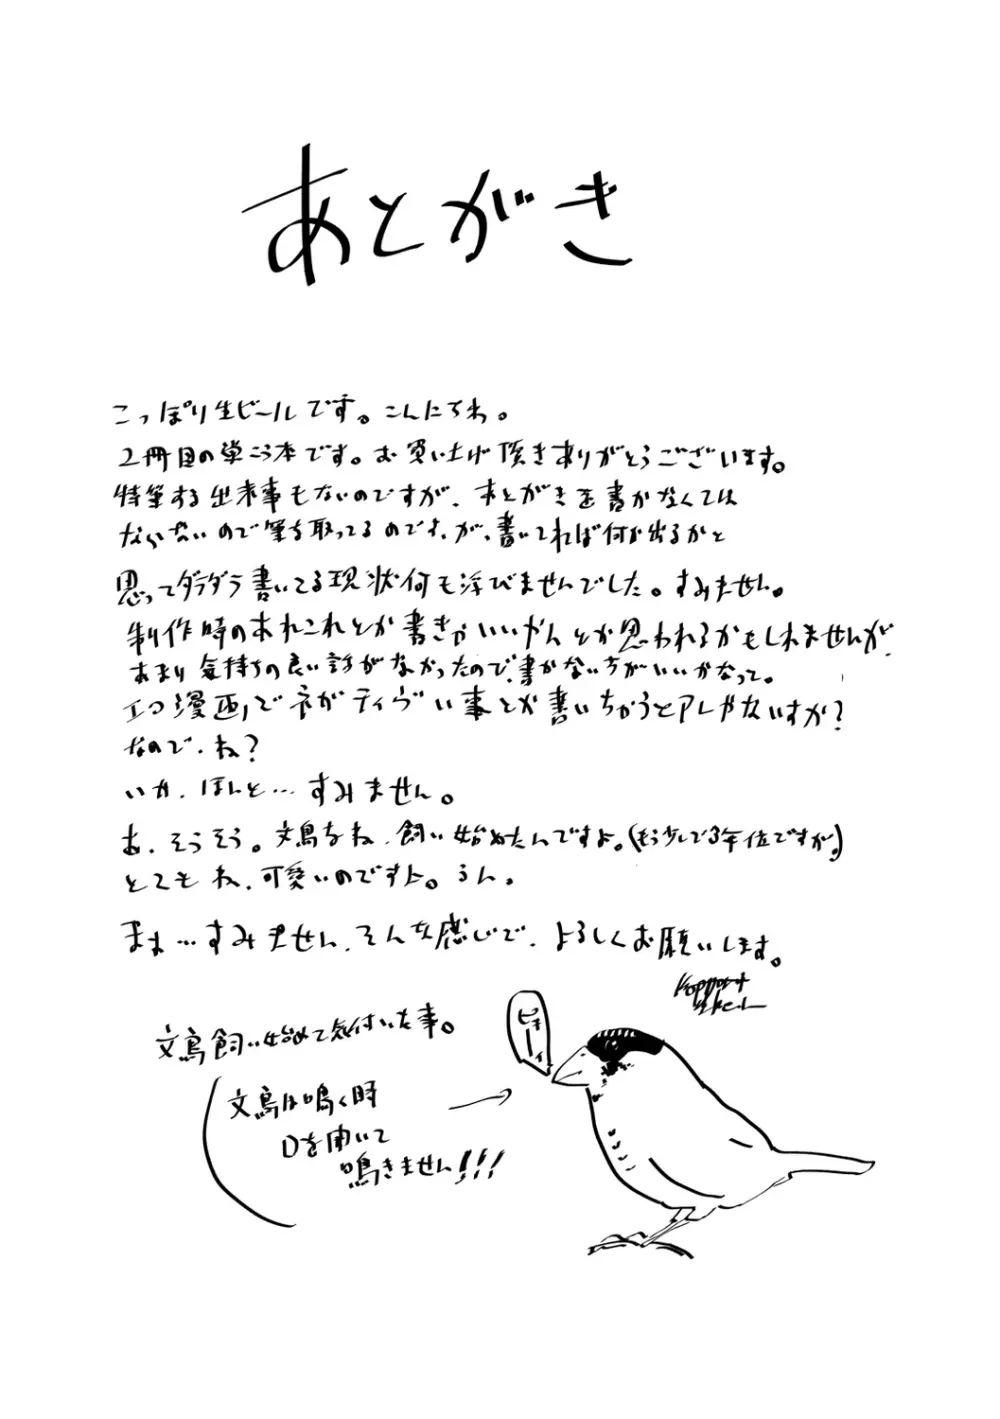 あとがき
こっぽり生ビールです。こんにちわ。
2冊目の単こう本です。お買い上げ頂きありがとうございます。
特筆する出来事もないのですが、あとがきを書かなくては
ならないので筆を取ってるのです、が、書いてれば何か出るかと
思ってダラダラ書いてる現状何も浮びませんでした。すみません。
制作時のあれこれとか書きゃいいやんとか思われるかもしれませんが、
あまり気持ちの良い話がなかったので、書かない方がいいかなって。
エロ漫画でネガティヴい事とか書いちゃうとアレやないすか?
なので、ね?
いや、ほんと…すみません。
あ、そうそう。文鳥をね、飼い始めたんですよ。(もう少しで3年位ですが。)
とてもね、可愛いのですよ。うん。
まぁ…すみません、そんな感じで、よろしくお願いします。
文鳥飼い始めて気付いた事。
ピョーイ
文鳥は鳴く時
口を開いて
鳴きません!!!